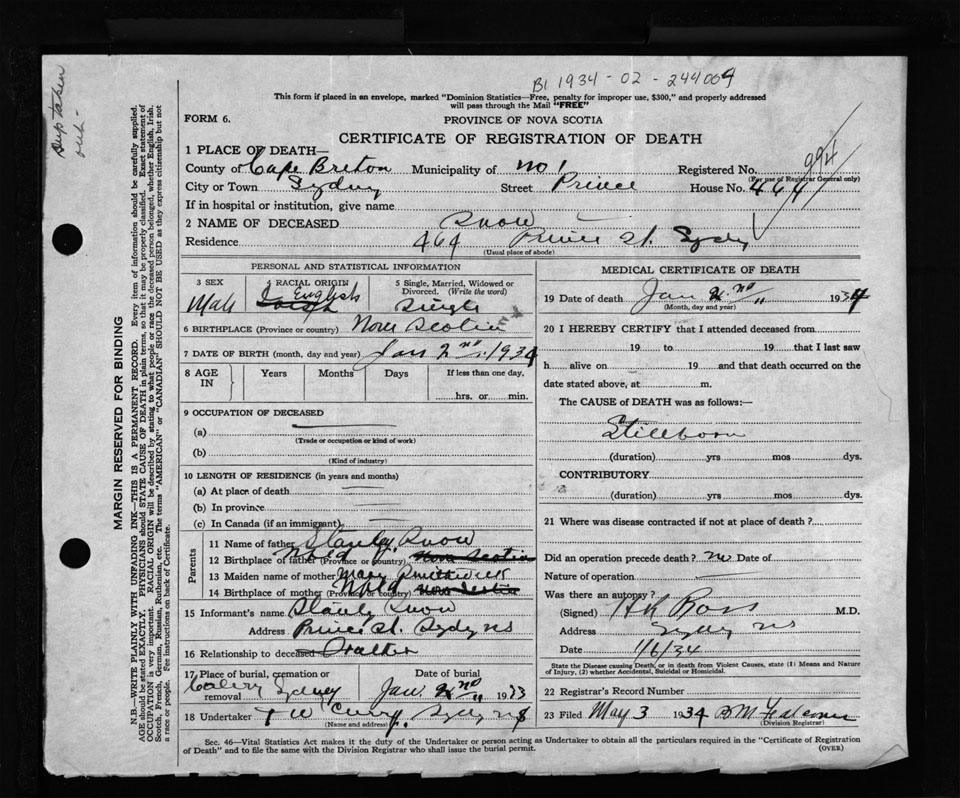 B1 1934 - 02 - 244004
Dup taken
out -
This form if placed in an envelope, marked "Dominion Statistics—Free, penalty for improper use, $300," and properly addressed
will pass through the Mail "FREE"
FORM 6.
PROVINCE OF NOVA SCOTIA
CERTIFICATE OF REGISTRATION OF DEATH
994
1 PLACE OF DEATH—
County of Cape Breton Municipality of No 1 Registered No.
(For use of Registrar General only)
City or Town Sydney Street Prince House No. 464
If in hospital or institution, give name
2 NAME OF DECEASED Snow
Residence 464 Prince St. Sydney
(Usual place of abode)
PERSONAL AND STATISTICAL INFORMATION
3 SEX Male
4 RACIAL ORIGIN English
5 Single, Married, Widowed or Divorced. (Write the word) Single
6 BIRTHPLACE (Province or country) Nova Scotia
7 DATE OF BIRTH (month, day and year) Jan 2nd 1934
8 AGE IN Years Months Days If less than one day, hrs. or min.
9 OCCUPATION OF DECEASED
(a)
(Trade or occupation or kind of work)
(b)
(Kind of industry)
10 LENGTH OF RESIDENCE (in years and months)
(a) At place of death
(b) In province
(c) In Canada (if an immigrant)
Parents
11 Name of father Stanley Snow
12 Birthplace of father (Province or country) Nfld Nova Scotia
13 Maiden name of mother Mary
14 Birthplace of mother (Province or country) Nfld Nova Scotia
15 Informant's name Stanley Snow
Address Prince St. Sydney NS
16 Relationship to deceased Father
17 Place of burial, cremation or removal Sydney
Date of burial Jan. 2nd 1933
18 Undertaker T W Curry Sydney NS
(Name and address)
MEDICAL CERTIFICATE OF DEATH
19 Date of death Jan 2nd 1934
(Month, day and year)
20 I HEREBY CERTIFY that I attended deceased from
19 to 19 that I last saw
h alive on 19 and that death occurred on the
date stated above, at m.
The CAUSE of DEATH was as follows:—
Stillborn
(duration) yrs mos dys.
CONTRIBUTORY
(duration) yrs mos dys.
21 Where was disease contracted if not at place of death?
Did an operation precede death? no Date of
Nature of operation
Was there an autopsy?
(Signed) H K Ross M.D.
Address Sydney NS
Date 1/6/34
State the Disease causing Death, or in death from Violent Causes, state (1) Means and Nature
of Injury, (2) whether Accidental, Suicidal or Homicidal.
22 Registrar's Record Number
23 Filed May 3 1934 B M
(Division Registrar)
Sec. 46—Vital Statistics Act makes it the duty of the Undertaker or person acting as Undertaker to obtain all the particulars required in the "Certificate of Registration
of Death" and to file the same with the Division Registrar who shall issue the burial permit.
(OVER)
MARGIN RESERVED FOR BINDING
N.B.—WRITE PLAINLY WITH UNFADING INK—THIS IS A PERMANENT RECORD. Every item of information should be carefully supplied.
AGE should be stated EXACTLY. PHYSICIANS should STATE CAUSE OF DEATH in plain terms, so that it may be properly classified. Exact statement of
OCCUPATION is very important. RACIAL ORIGIN will be described by stating to what people or race the deceased person belonged, whether English, Irish,
Scotch, French, German, Russian, Ruthenian, etc. The terms "AMERICAN" or "CANADIAN" SHOULD NOT BE USED as they express citizenship but not
a race or people. See instructions on back of Certificate.